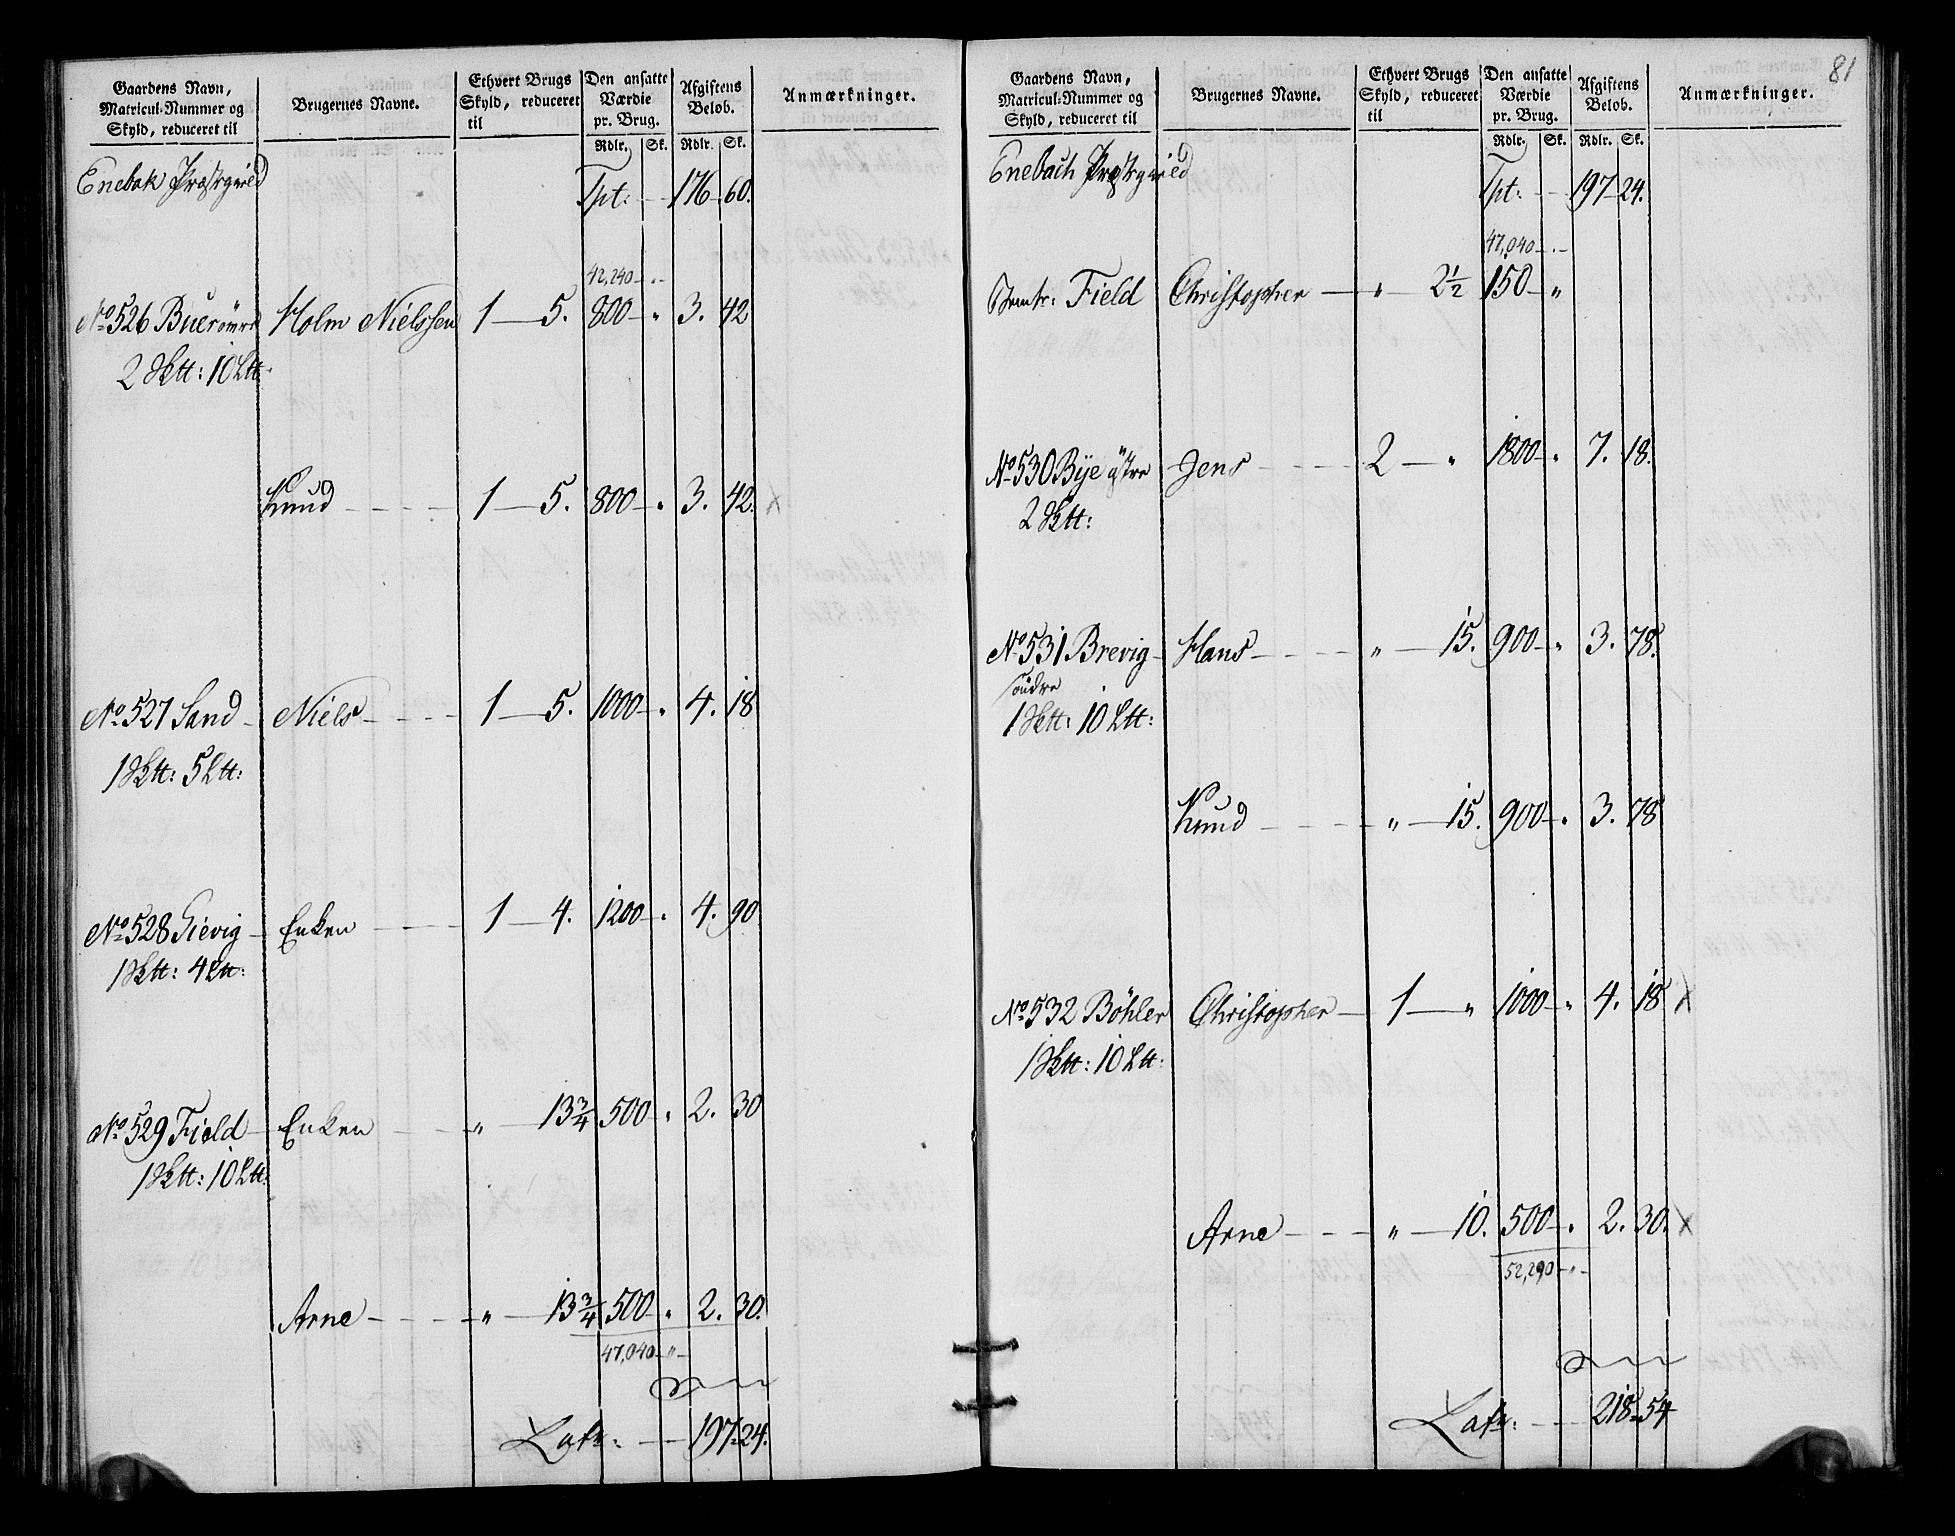 Gaardens Navn, Matricul-Nummer og Skyld, reduceret til
Brugernes Navne.
Ethvert Brugs Skyld, reduceret til
Den ansatte Værdie pr. Brug.
Afgiftens Beløb.
Anmærkninger.
Rdlr. Sk. Rdlr. Sk.
Enebak Præstegield
Tpt: — 176 60.
42,240 — " —
No 526 Buer Holm Nielssen 1 — 5. 800 — " 3. 42
2 Sktt: 10 Ltt:
Knud - - - - 1 — 5. 800 — " 3. 42. X
No 527 Sand — Niels - - - - 1 — 5. 1000 — " 4. 18
1 Sktt: 5 Ltt:
No 528 Gievig — Enken - - - - 1 — 4. 1200 — " 4. 90
1 Sktt: 4 Ltt:
No 529 Field — Enken - - - " — 13 3/4 500 — " 2. 30
1 Sktt: 10 Ltt:
Arne - - - - " — 13 3/4 500 — " 2. 30.
47,040 — " —
Latr: — 197 - 24.
81
Gaardens Navn, Matricul-Nummer og Skyld, reduceret til
Brugernes Navne.
Ethvert Brugs Skyld, reduceret til
Den ansatte Værdie pr. Brug.
Afgiftens Beløb.
Anmærkninger.
Rdlr. Sk. Rdlr. Sk.
Enebach Præstegield
Tpt: — 197 24.
47,040 — " —
Field Christopher — " — 2 1/2 150 — "
No 530 Bye østre Jens - - - - 2 — " 1800 — " 7. 18.
2 Sktt:
No 531 Brevig — Hans - - - - " — 15. 900 — " 3. 78.
søndre
1 Sktt: 10 Ltt:
Knud - - - - " — 15. 900 — " 3. 78
No 532 Böhler Christopher — 1 — " 1000 — " 4. 18 X
1 Sktt: 10 Ltt:
Arne - - - - " — 10. 500 — " 2. 30. X
52,290 — " —
Latr: - - - 218 - 54